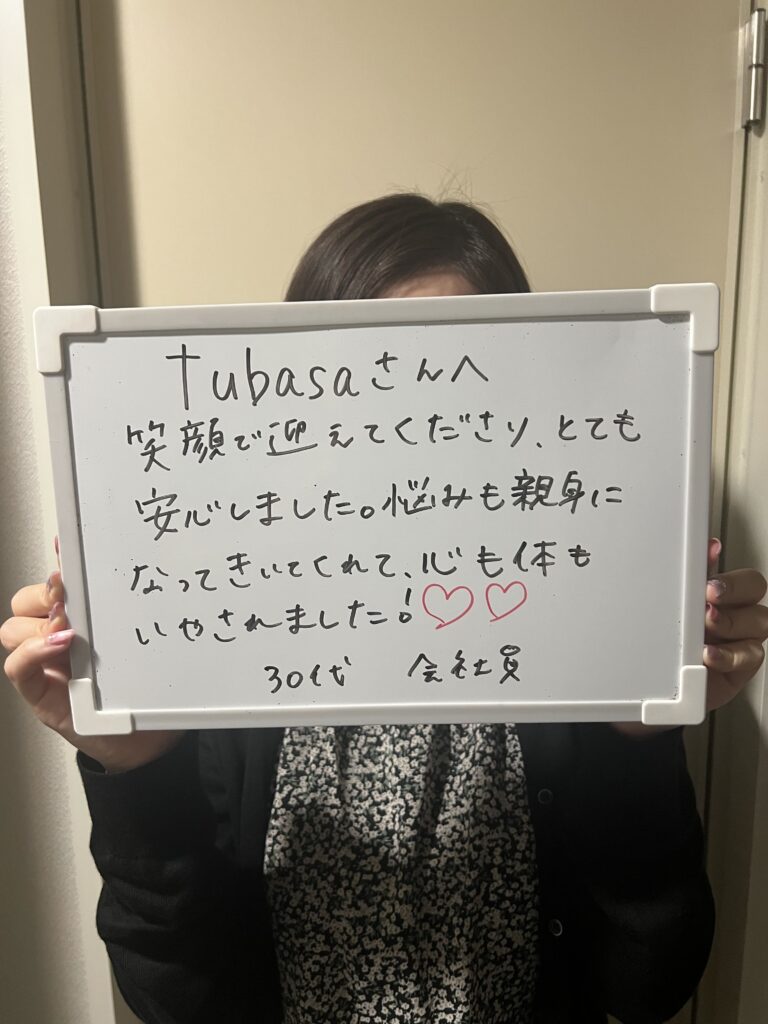 tubasaさんへ
笑顔で迎えてくださり、とても
安心しました。悩みも親身に
なってきいてくれて、心も体も
いやされました!♡♡
30代 会社員